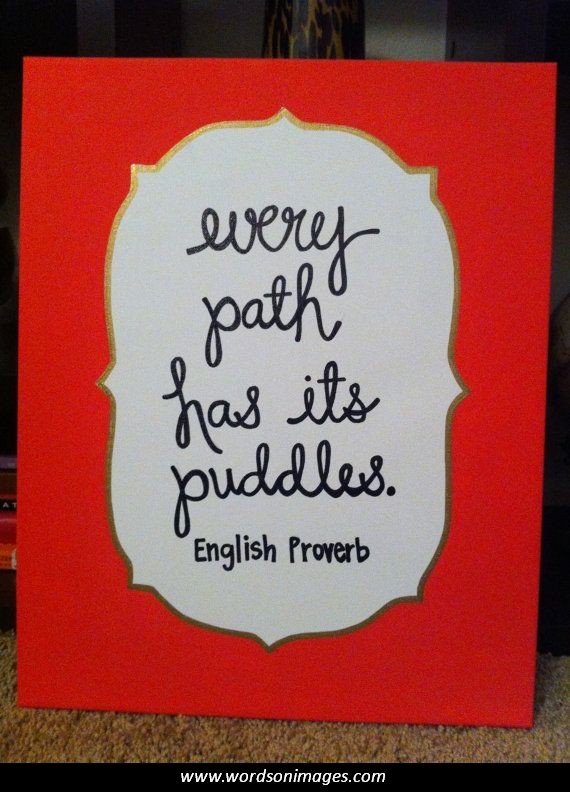 every
path
has its
puddles.
English Proverb
www.wordsonimages.com